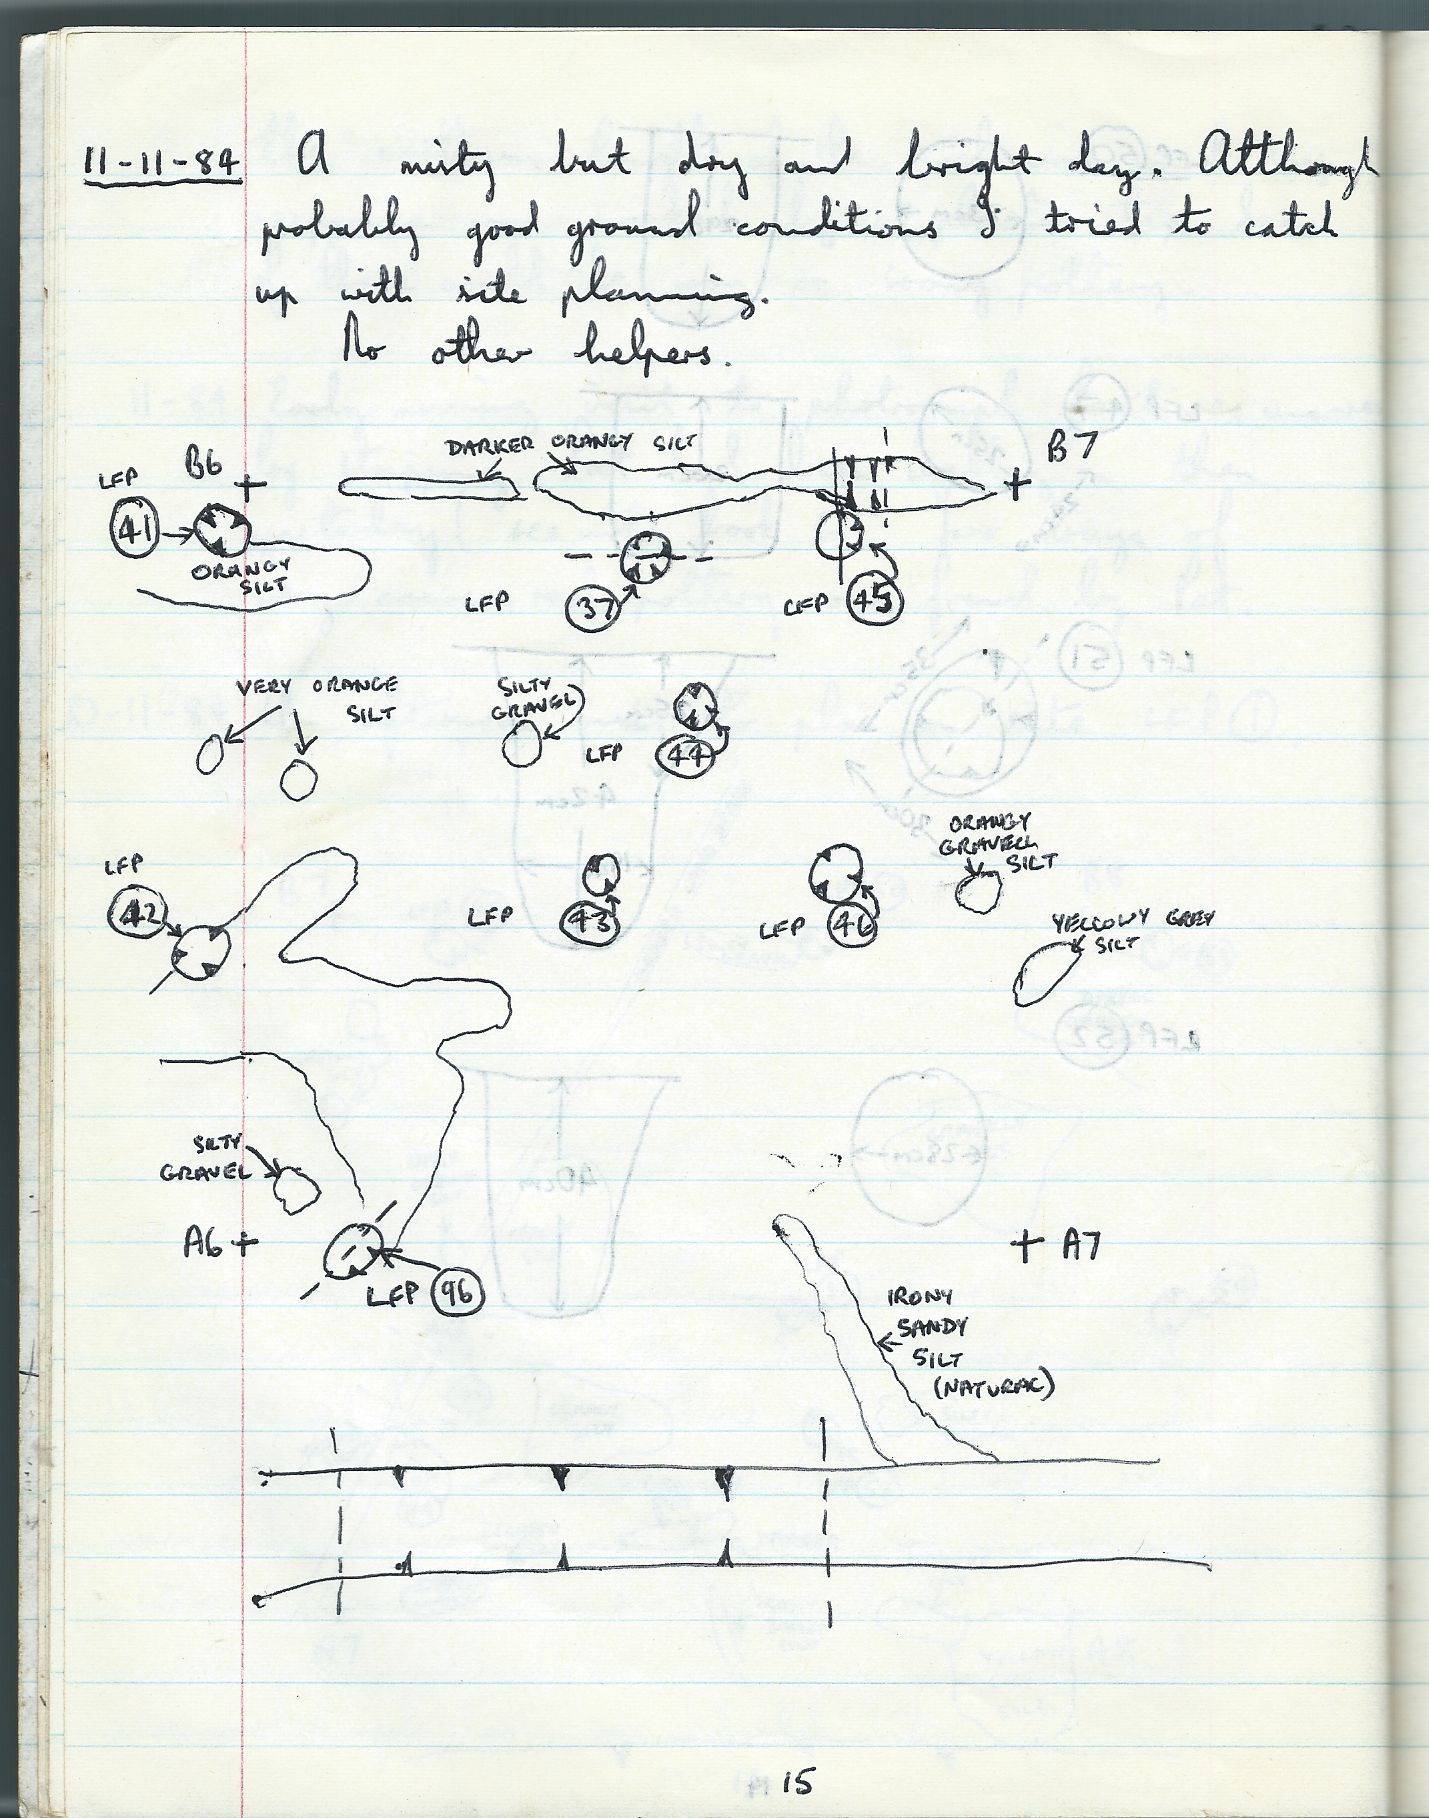 11-11-84 A misty but dry and bright day. Although
probably good ground conditions I tried to catch
up with site planning.
No other helpers.
DARKER ORANGY SILT
B7
B6
LFP
41
ORANGY
SILT
LFP 37
LFP 45
VERY ORANGE
SILT
SILTY
GRAVEL
LFP 44
ORANGY
GRAVELL
SILT
LFP
42
LFP 43
LFP 46
YELLOWY GREY
SILT
SILTY
GRAVEL
A6
A7
LFP 96
IRONY
SANDY
SILT
(NATURAL)
15